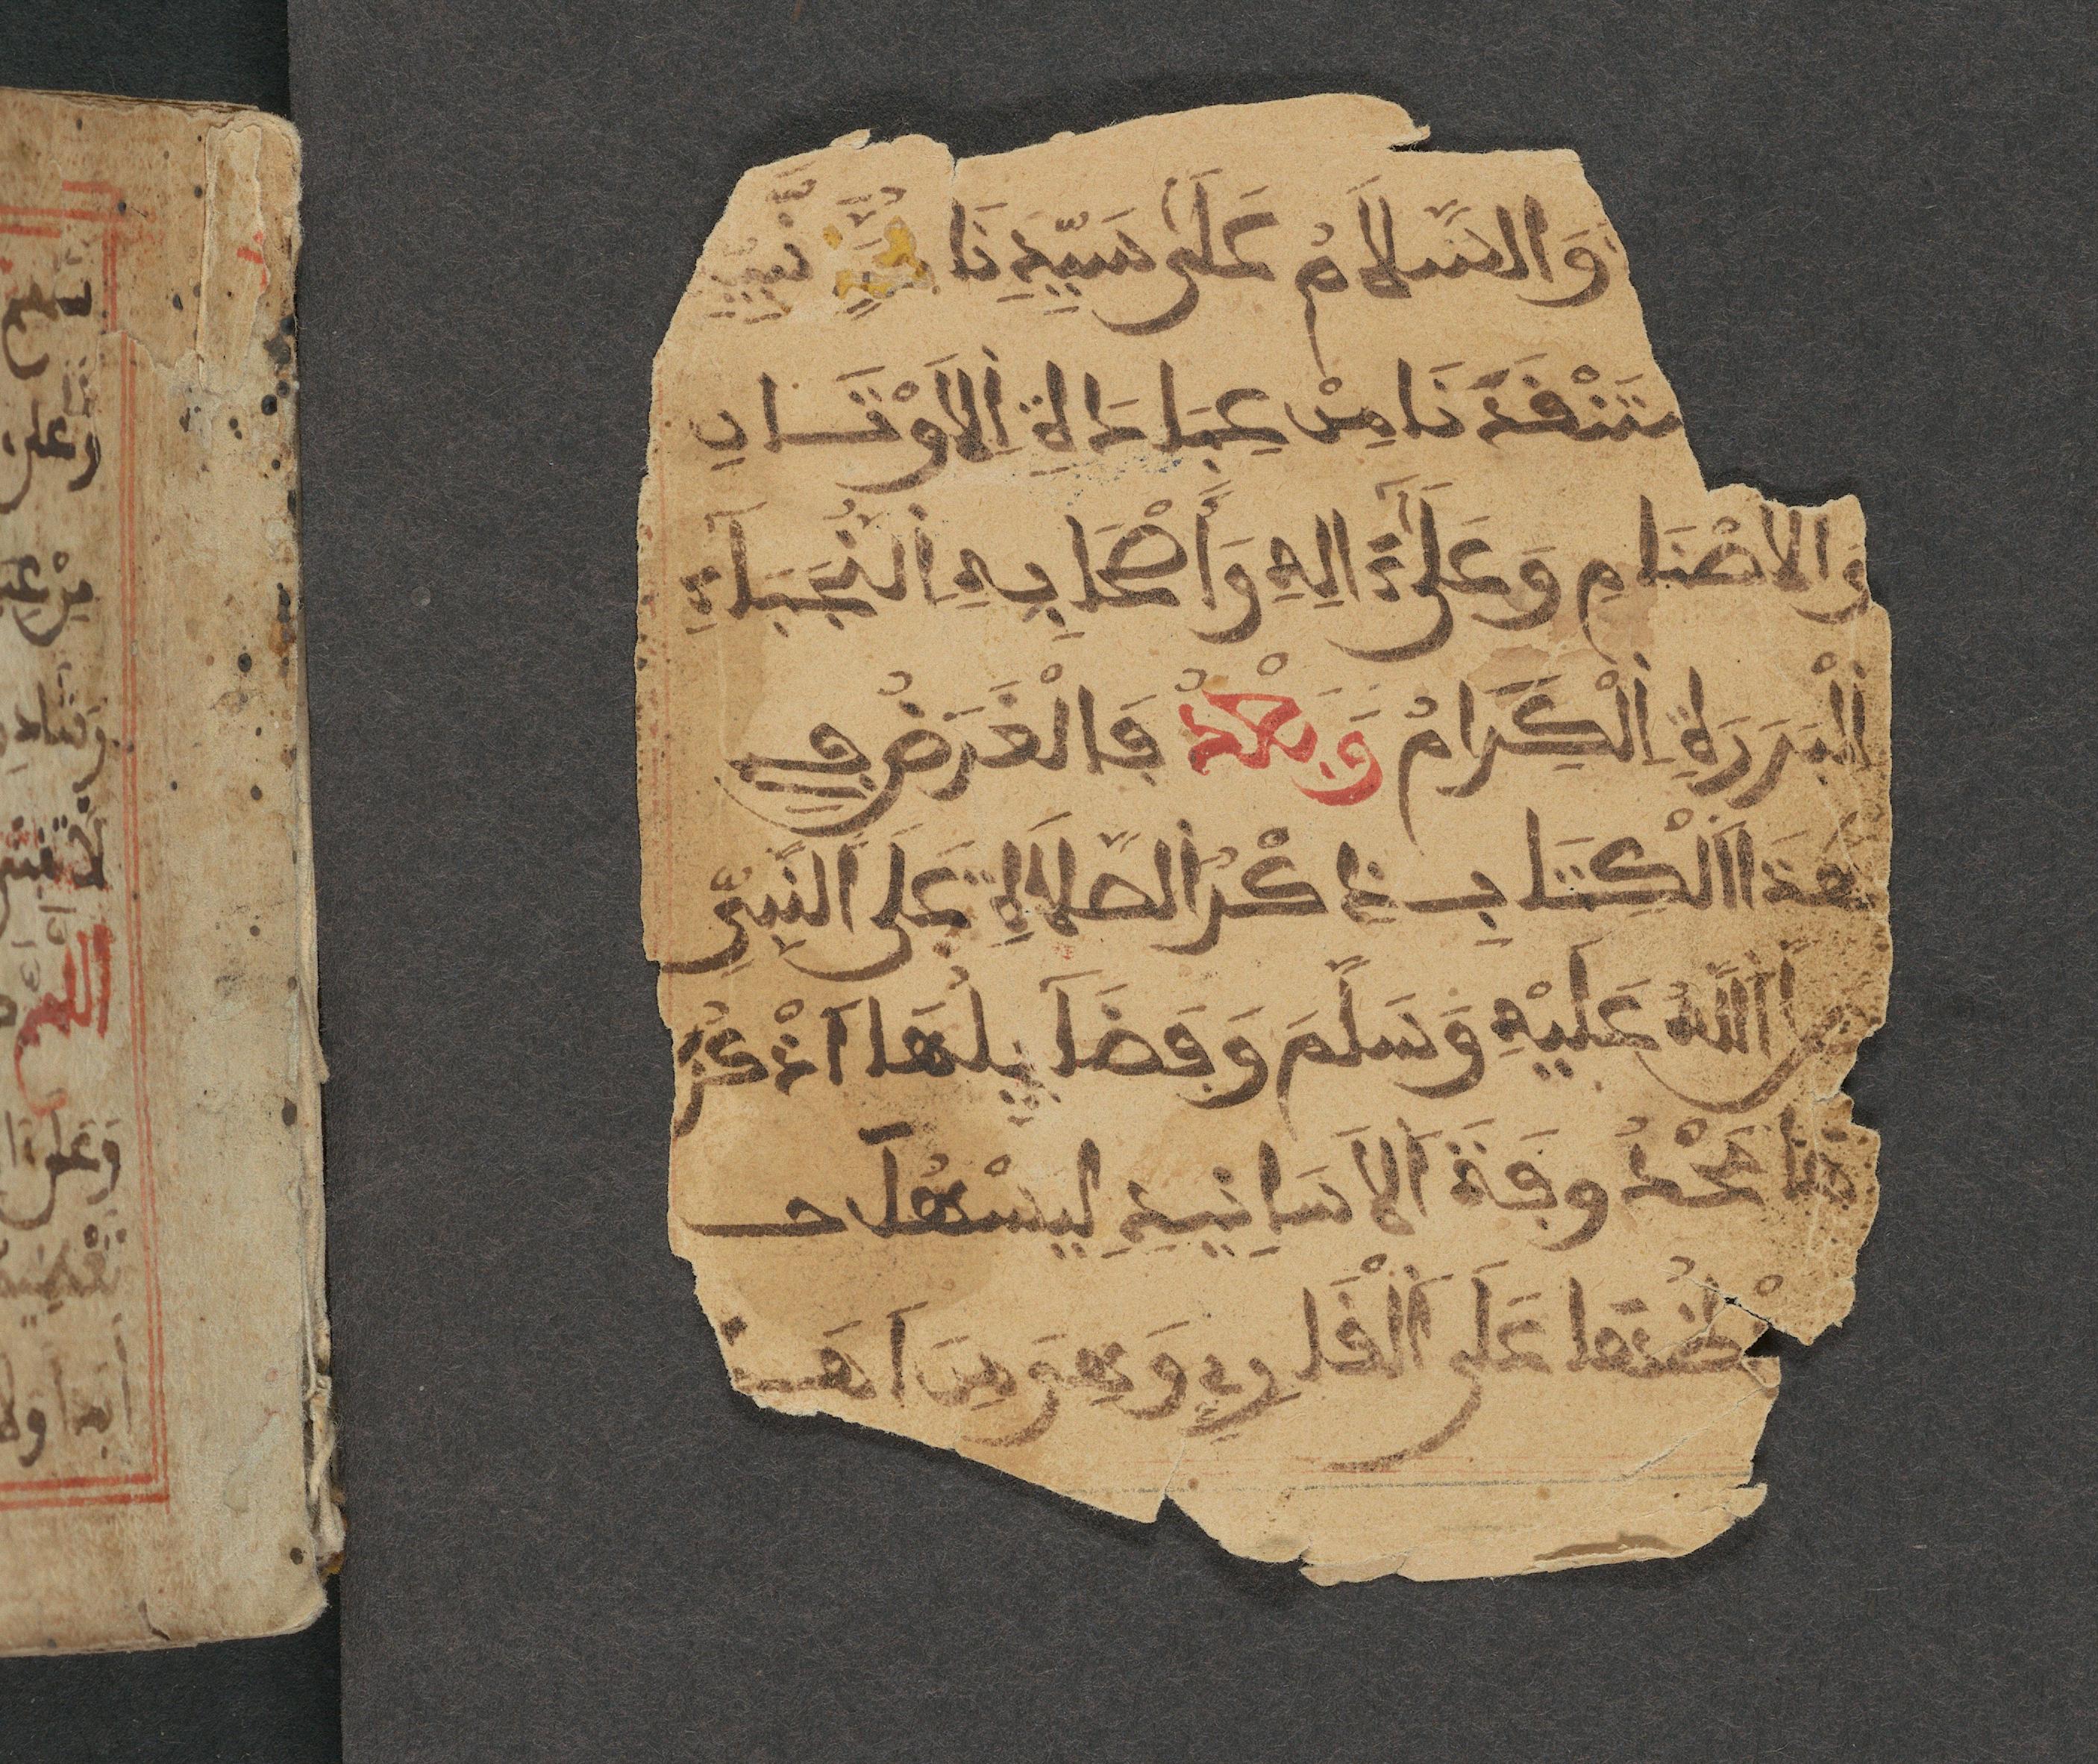 وَالسَّلَامُ عَلَى سَيِّدِنَا مُحَمَّدٍ نَّبِيِّهِ
سْتَنْقَذَنَا مِنْ عِبَادَاةِ اِلَاوْثَانِ
وَالاصْنَامِ وَعَلَىٰٓ ءَالِهِ وَأَصْحَابِهِ اِلنُّجَبَآءِ
اِلْبَرَرَاةِ اِلْكِرَامْ وَبَعْدُ فَالْغَرَضُ فِے
هَذَا اَلْكِتَابِ ذِكْرُ اُلصَّلَاةِ عَلَى اَلنَّبِيِّ
صَلَّى اَللَّهُ عَلَيْهِ وَسَلَّمَ وَفَضَآئِلُهَا اَذْكُرُ
هَا مَحْذُوفَةَ اَلَاسَانِيدِ لِيَسْهُلَ حِـ
ـفْظُهَا عَلَى اَلْقَارِئِ وَهِيَ مِنَ اَهَمِّ
وَعلى
مِنْ
اللهم
وَعلى
أبدا